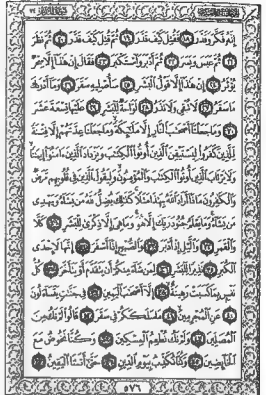 إِنَّهُ فَكَّرَ وَقَدَّرَ ١٨ فَقُتِلَ كَيْفَ قَدَّرَ ١٩ ثُمَّ قُتِلَ كَيْفَ قَدَّرَ ٢٠ ثُمَّ نَظَرَ
٢١ ثُمَّ عَبَسَ وَبَسَرَ ٢٢ ثُمَّ أَدْبَرَ وَاسْتَكْبَرَ ٢٣ فَقَالَ إِنْ هَذَا إِلَّا سِحْرٌ
يُؤْثَرُ ٢٤ إِنْ هَذَا إِلَّا قَوْلُ الْبَشَرِ ٢٥ سَأُصْلِيهِ سَقَرَ ٢٦ وَمَا أَدْرَاكَ
مَا سَقَرُ ٢٧ لَا تُبْقِي وَلَا تَذَرُ ٢٨ لَوَّاحَةٌ لِلْبَشَرِ ٢٩ عَلَيْهَا تِسْعَةَ عَشَرَ
٣٠ وَمَا جَعَلْنَا أَصْحَابَ النَّارِ إِلَّا مَلَائِكَةً وَمَا جَعَلْنَا عِدَّتَهُمْ إِلَّا فِتْنَةً
لِلَّذِينَ كَفَرُوا لِيَسْتَيْقِنَ الَّذِينَ أُوتُوا الْكِتَابَ وَيَزْدَادَ الَّذِينَ آمَنُوا إِيمَانًا
وَلَا يَرْتَابَ الَّذِينَ أُوتُوا الْكِتَابَ وَالْمُؤْمِنُونَ وَلِيَقُولَ الَّذِينَ فِي قُلُوبِهِمْ مَرَضٌ
وَالْكَافِرُونَ مَاذَا أَرَادَ اللَّهُ بِهَذَا مَثَلًا كَذَلِكَ يُضِلُّ اللَّهُ مَنْ يَشَاءُ وَيَهْدِي
مَنْ يَشَاءُ وَمَا يَعْلَمُ جُنُودَ رَبِّكَ إِلَّا هُوَ وَمَا هِيَ إِلَّا ذِكْرَى لِلْبَشَرِ ٣١ كَلَّا
وَالْقَمَرِ ٣٢ وَاللَّيْلِ إِذْ أَدْبَرَ ٣٣ وَالصُّبْحِ إِذَا أَسْفَرَ ٣٤ إِنَّهَا لَإِحْدَى
الْكُبَرِ ٣٥ نَذِيرًا لِلْبَشَرِ ٣٦ لِمَنْ شَاءَ مِنْكُمْ أَنْ يَتَقَدَّمَ أَوْ يَتَأَخَّرَ ٣٧ كُلُّ
نَفْسٍ بِمَا كَسَبَتْ رَهِينَةٌ ٣٨ إِلَّا أَصْحَابَ الْيَمِينِ ٣٩ فِي جَنَّاتٍ يَتَسَاءَلُونَ
٤٠ عَنِ الْمُجْرِمِينَ ٤١ مَا سَلَكَكُمْ فِي سَقَرَ ٤٢ قَالُوا لَمْ نَكُ مِنَ
الْمُصَلِّينَ ٤٣ وَلَمْ نَكُ نُطْعِمُ الْمِسْكِينَ ٤٤ وَكُنَّا نَخُوضُ مَعَ
الْخَائِضِينَ ٤٥ وَكُنَّا نُكَذِّبُ بِيَوْمِ الدِّينِ ٤٦ حَتَّى أَتَانَا الْيَقِينُ ٤٧
٥٧٦